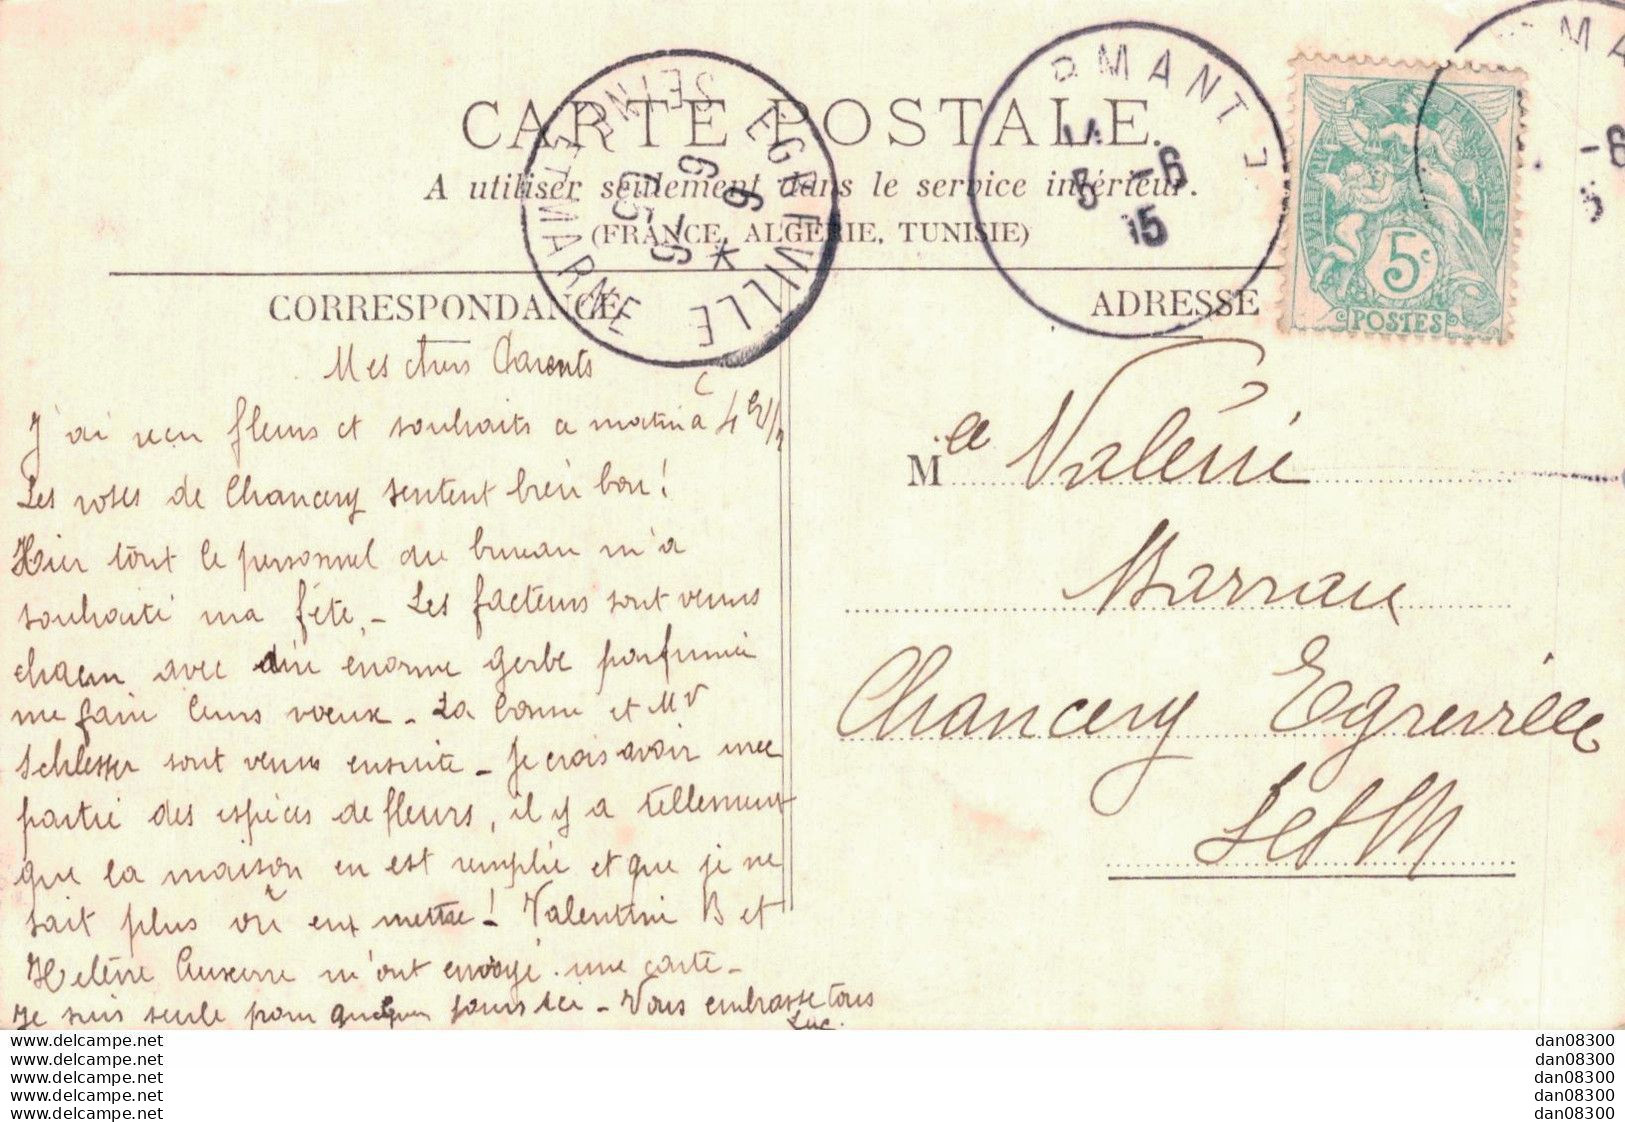 CARTE POSTALE.
A utiliser seulement dans le service intérieur.
(FRANCE, ALGERIE, TUNISIE)
EGREVILLE
SEINE ET MARNE
RMANT
5 -6
15
5c
POSTES
CORRESPONDANCE
Mes chers Parents
J'ai reçu fleurs et souhaits ce matin à 4h 1/2
Les roses de Chancery sentent bien bon!
Hier tout le personnel du bureau m'a
souhaité ma fête. - Les facteurs sont venus
chacun avec une énorme gerbe parfumée
me faire leurs voeux - La et Mr
Schlesser sont venus ensuite - Je crois avoir une
partie des espèces de fleurs, il y a tellement
que la maison en est remplie et que je ne
sait plus où en mettre! Valentine B et
Hélène m'ont envoyé une carte -
Je suis seule pour quelques jours ici - Vous embrasse tous
Luc.
ADRESSE
Mlle Valérie
Marrau
Chancery Egreville
S et M
www.delcampe.net
www.delcampe.net
www.delcampe.net
www.delcampe.net
www.delcampe.net
dan08300
dan08300
dan08300
dan08300
dan08300